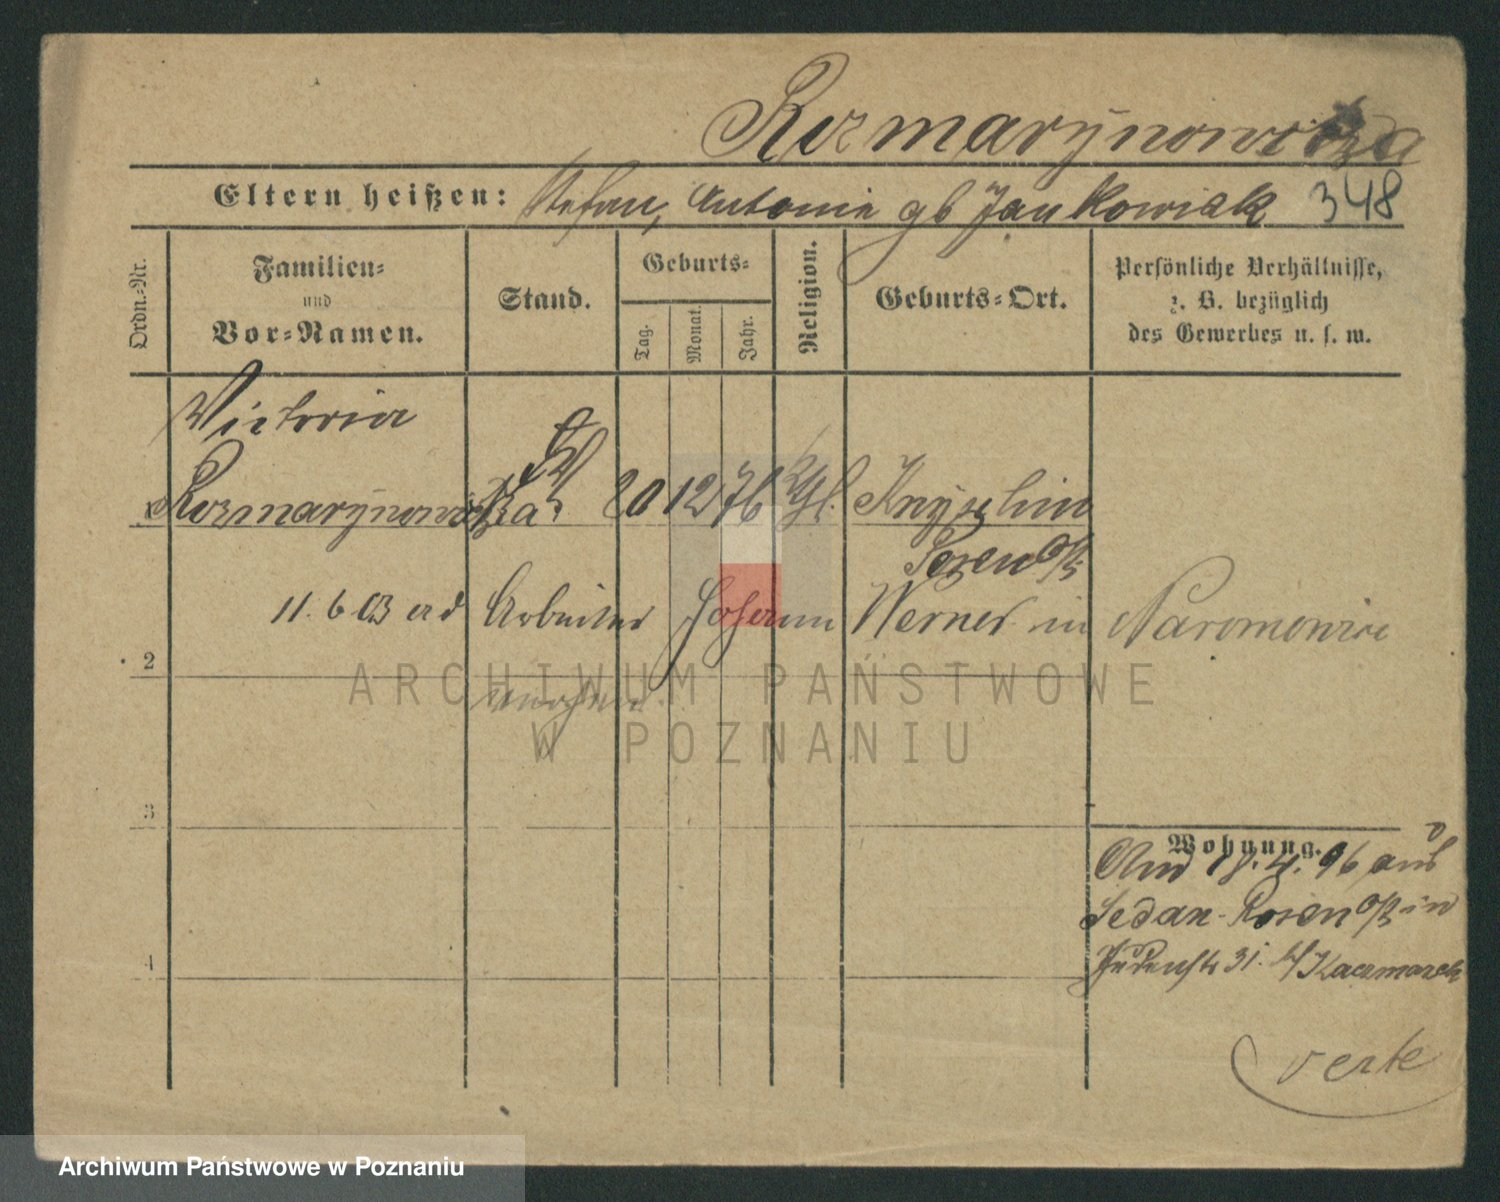 Rozmarynowicza
Eltern heißen: Stefan, Antonie gb Jankowiak 348
Ordn.-Nr.
Familien-
und
Vor-Namen.
Stand.
Geburts-
Tag.
Monat.
Jahr.
Religion.
Geburts-Ort.
Persönliche Verhältnisse,
z. B. bezüglich
des Gewerbes u. s. w.
Victoria
20 12 76 Kth.
Posen O/
11. 6 03 Arbeiter Johann Werner in Naromowice
2
3
4
Wohnung.
18.4.96 aus
Sedan-Posen O/ in
Judenstr 31. b/Kaczmarek
verte
ARCHIWUM PAŃSTWOWE
W POZNANIU
Archiwum Państwowe w Poznaniu